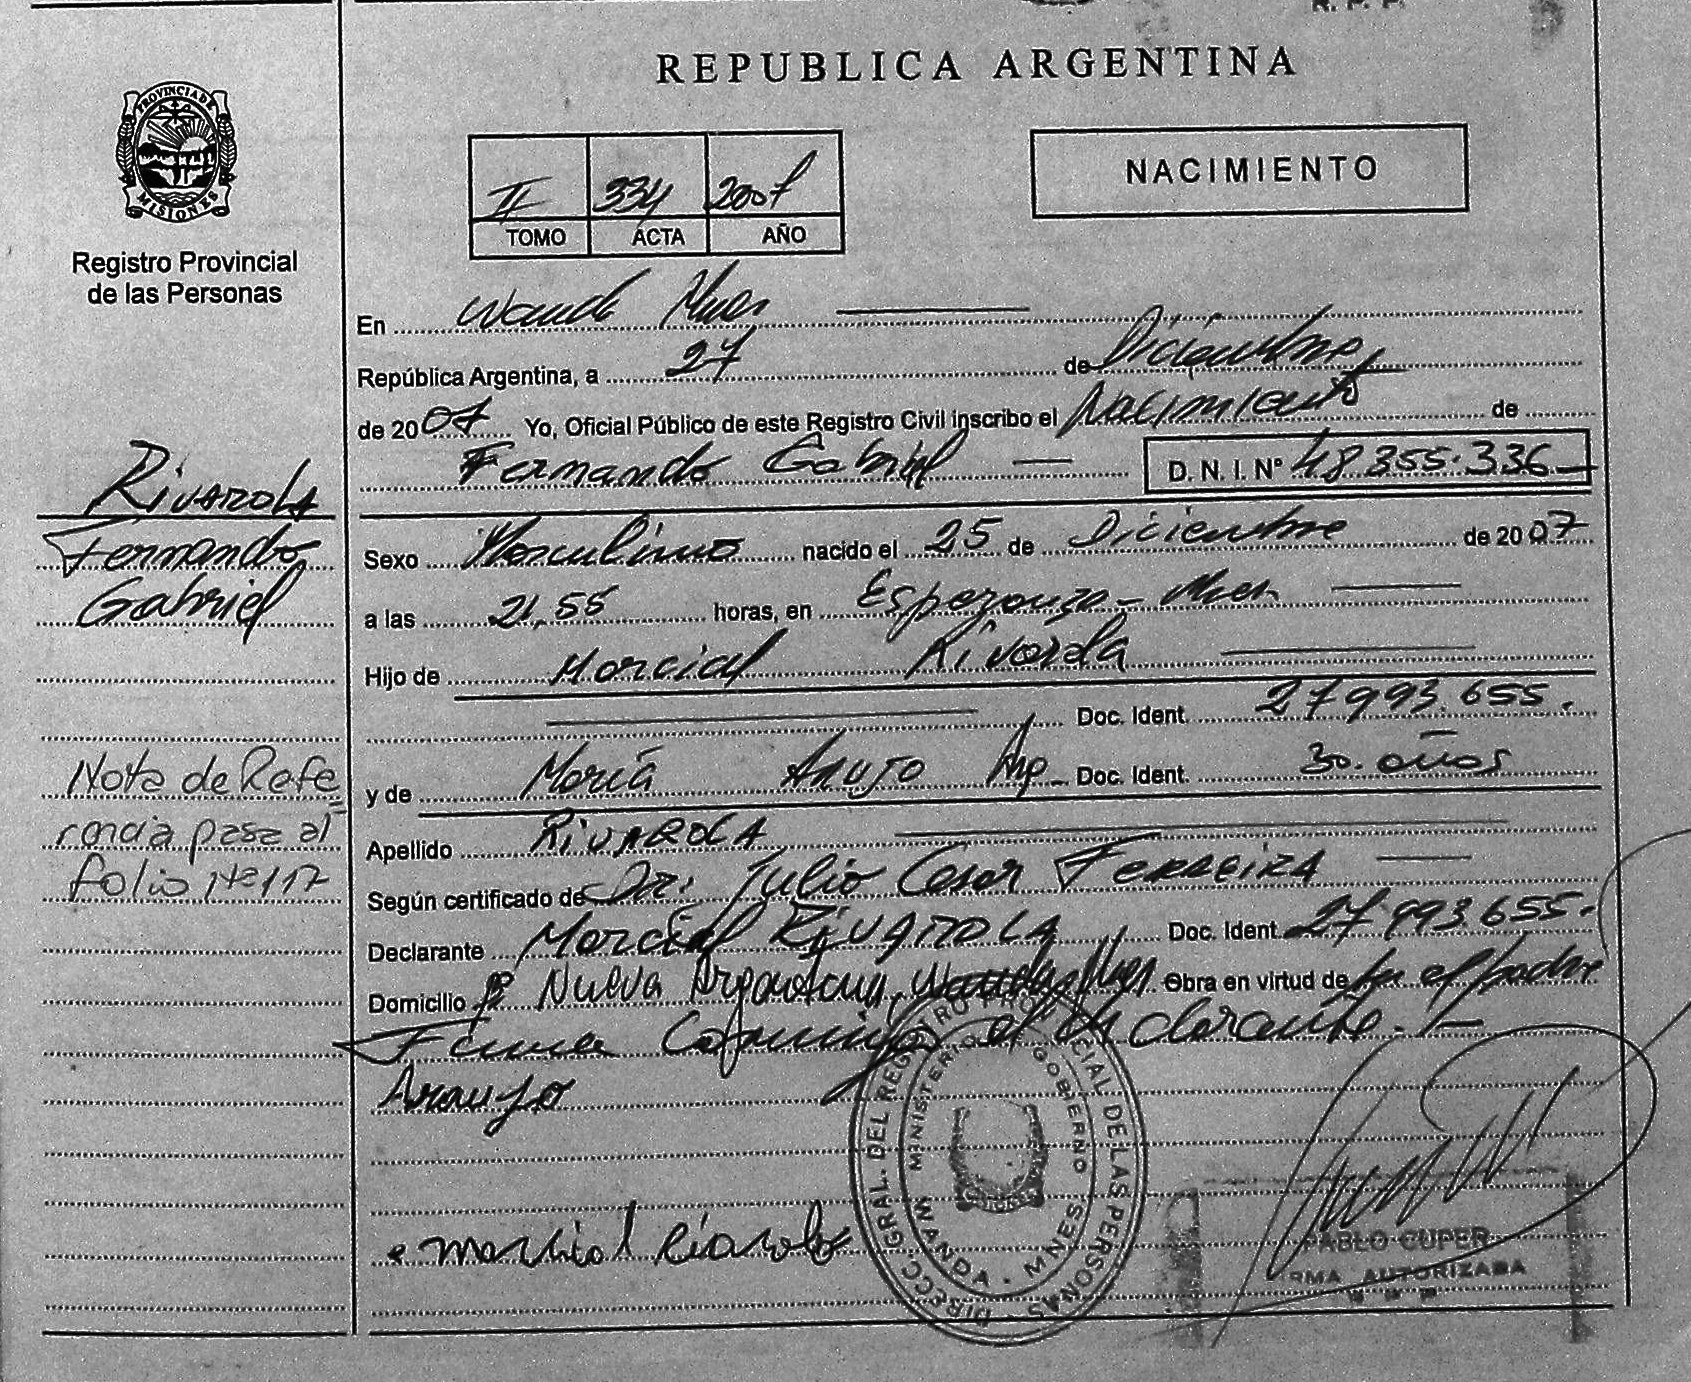 R. P. P.
REPUBLICA ARGENTINA
PROVINCIA DE
MISIONES
Registro Provincial
de las Personas
NACIMIENTO
II 334 2007
TOMO ACTA AÑO
En Wanda Mnes
República Argentina, a 27 de Diciembre
de 2007 Yo, Oficial Público de este Registro Civil inscribo el Nacimiento de
Fernando Gabriel D. N. I. Nº 48.355.336
RIVAROLA
Fernando
Gabriel
Sexo Masculino nacido el 25 de Diciembre de 2007
a las 21,55 horas, en Esperanza - Mnes
Hijo de Marcial Rivarola
Doc. Ident. 27993.655.
y de María Araujo Arg Doc. Ident. 30 años
Nota de Refe
rencia pasa al
folio Nº 117
Apellido RIVAROLA
Según certificado de Dr. Julio Cesar FERREIRA
Declarante Marcial RIVAROLA Doc. Ident. 27.993.655.
Domicilio Bº Nueva Argentina, Wanda, Mnes. Obra en virtud de ser el padre
Firma Conmigo el declarante.
Araujo
marcial Rivarola
DIRECC. GRAL. DEL REGISTRO PROVINCIAL DE LAS PERSONAS
MINISTERIO DE GOBIERNO
WANDA - MNES
PABLO CUPER
FIRMA AUTORIZADA